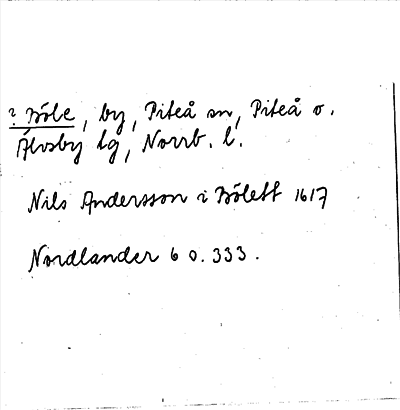 ? Böle, by, Piteå sn, Piteå o.
Älvsby tg, Norrb. l.
Nils Andersson i Bölett 1617
Nordlander 6 o. 333.